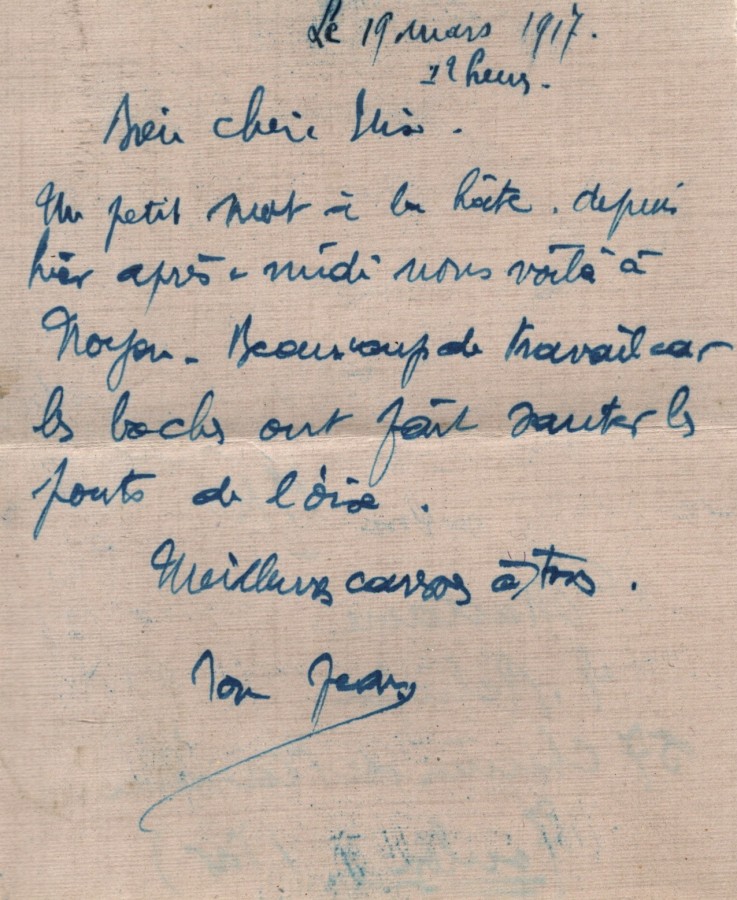 Le 19 mars 1917.
12 heures.
Bien chère
Un petit mot à la hâte. depuis
hier après-midi nous voilà à
Noyon. Beaucoup de travail car
les boches ont fait sauter les
ponts de l'Oise.
Meilleures caresses à tous.
Ton Jean